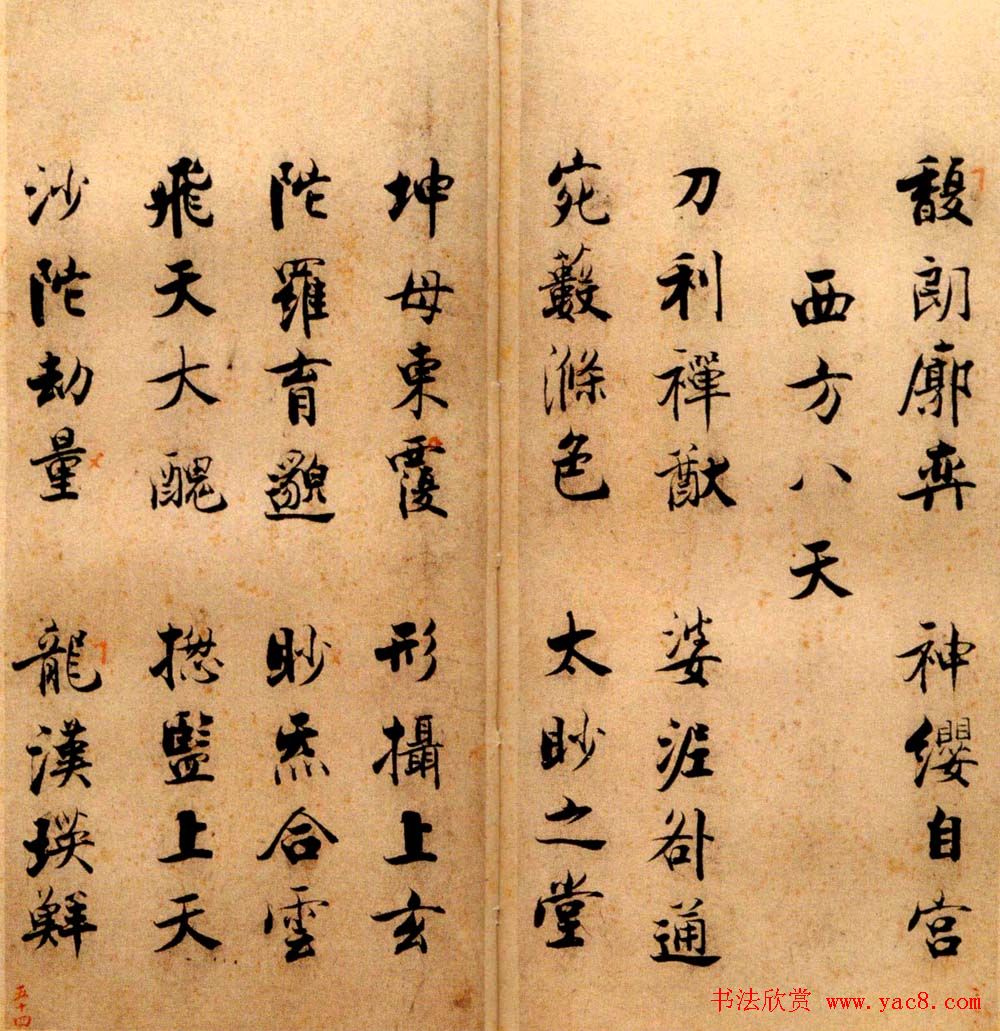 馥朗廓弈 神纓自宮
西方八天
刀利禪猷 婆泥咎通
宛藪滌色 太眇之堂
坤母東覆 形攝上玄
陁羅育邈 眇炁合雲
飛天大醜 揔監上天
沙陁劫量 龍漢瑛鮮
五十四
书法欣赏 www.yac8.com